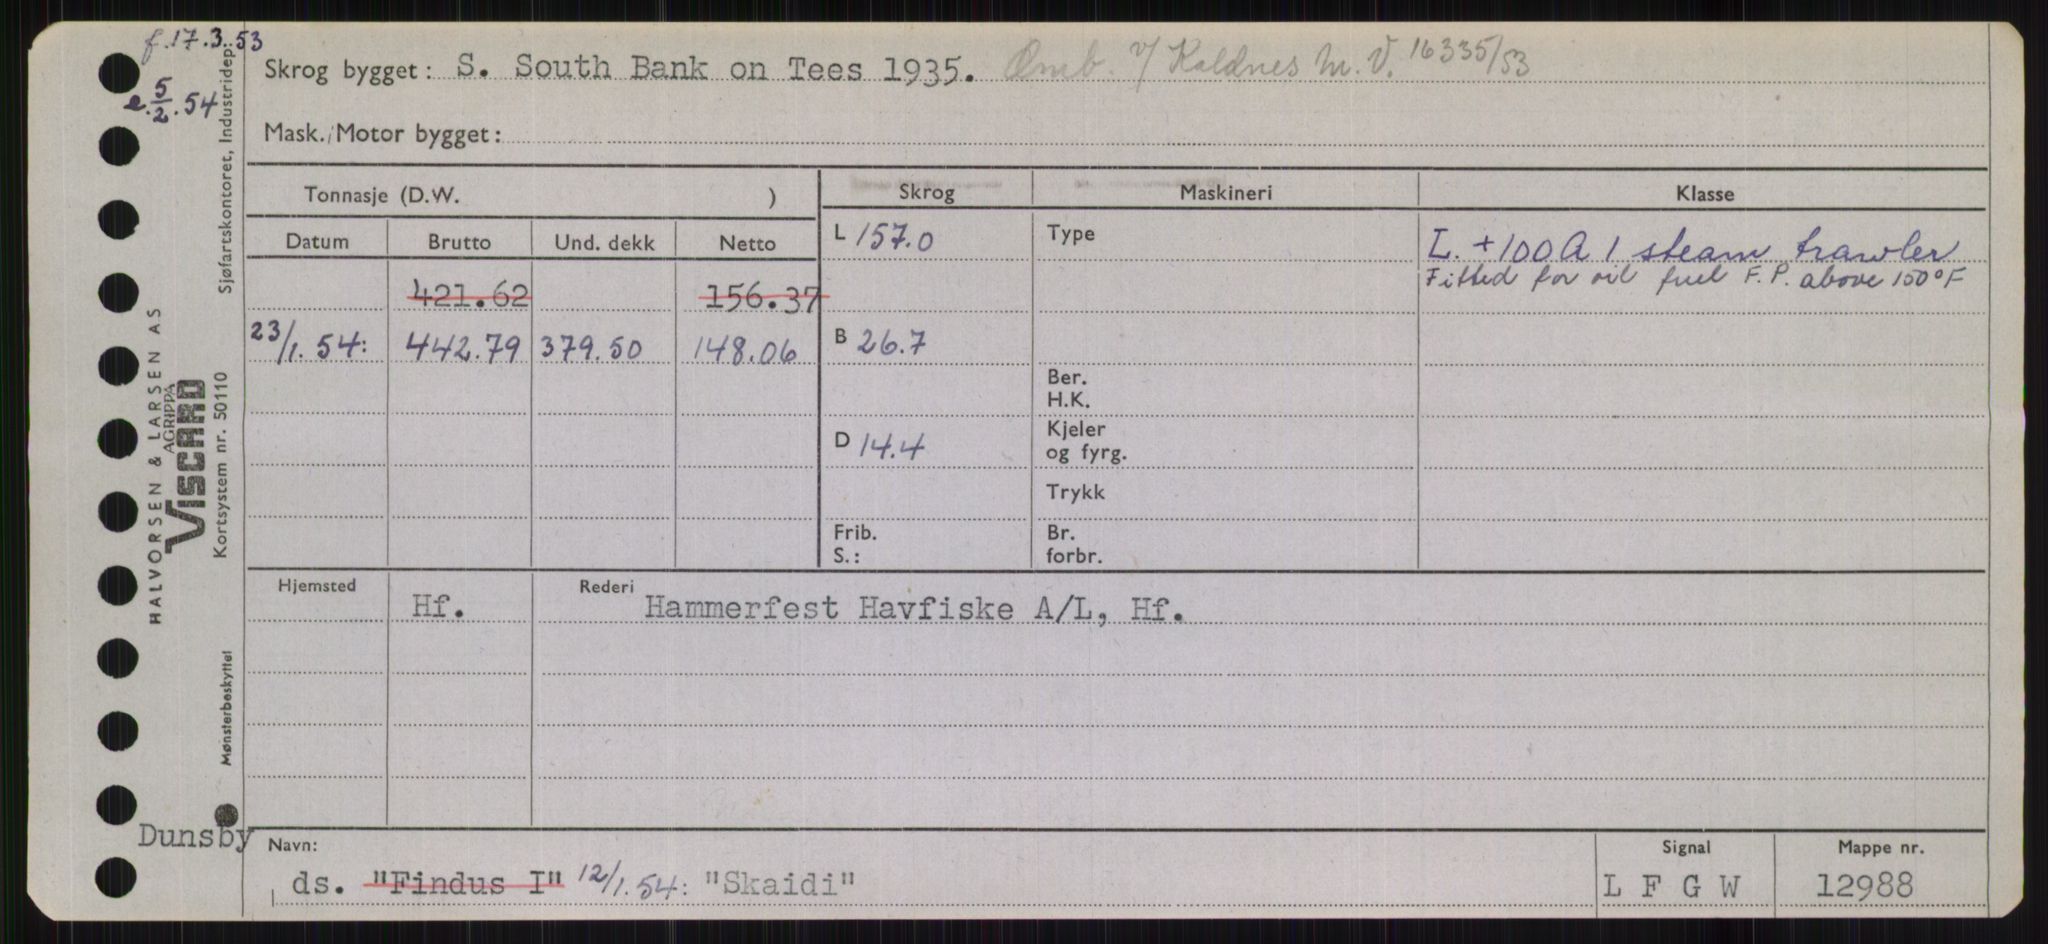 f.17.3.53
e.5/2.54
Skrog bygget: S. South Bank on Tees 1935. Omb. v/ Kaldnes M.V. 16335/53
Mask./Motor bygget:
Tonnasje (D.W. )
Skrog
Maskineri
Klasse
Datum
Brutto
Und. dekk
Netto
421.62
156.37
23/1.54:
442.79
379.50
148.06
L 157.0
B 26.7
D 14.4
Frib.
S.:
Type
Ber.
H.K.
Kjeler
og fyrg.
Trykk
Br.
forbr.
L. +100A1 steam trawler
Fitted for oil fuel F.P. above 150°F
Hjemsted
Hf.
Rederi
Hammerfest Havfiske A/L, Hf.
Dunsby
Navn:
ds. "Findus I" 12/1.54: "Skaidi"
Signal
L F G W
Mappe nr.
12988
Sjøfartskontoret, Industridep.
HALVORSEN & LARSEN AS
AGRIPPA
VISCARD
Kortsystem nr. 50110
Mønsterbeskyttet